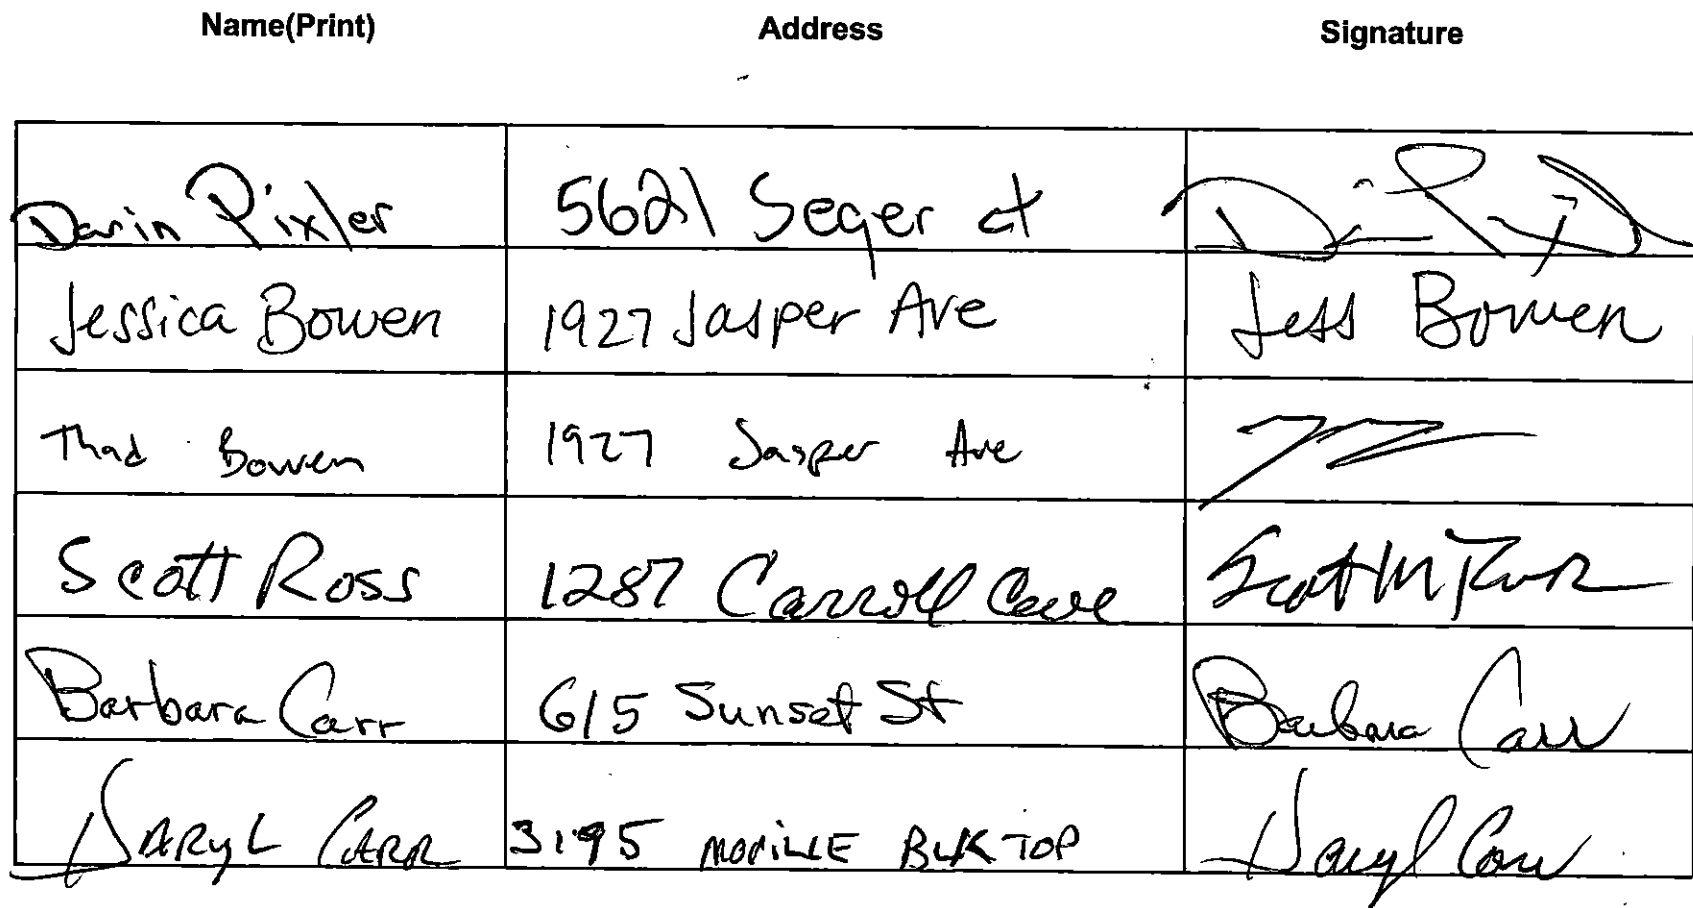 Name(Print) Address Signature
Darin Pixler 5621 Seger ct
Jessica Bowen 1927 Jasper Ave Jess Bowen
Thad Bowen 1927 Jasper Ave
Scott Ross 1287 Carroll Cave Scott M Ross
Barbara Carr 615 Sunset St Barbara Carr
DARYL CARR 3195 BLKTOP Daryl Carr